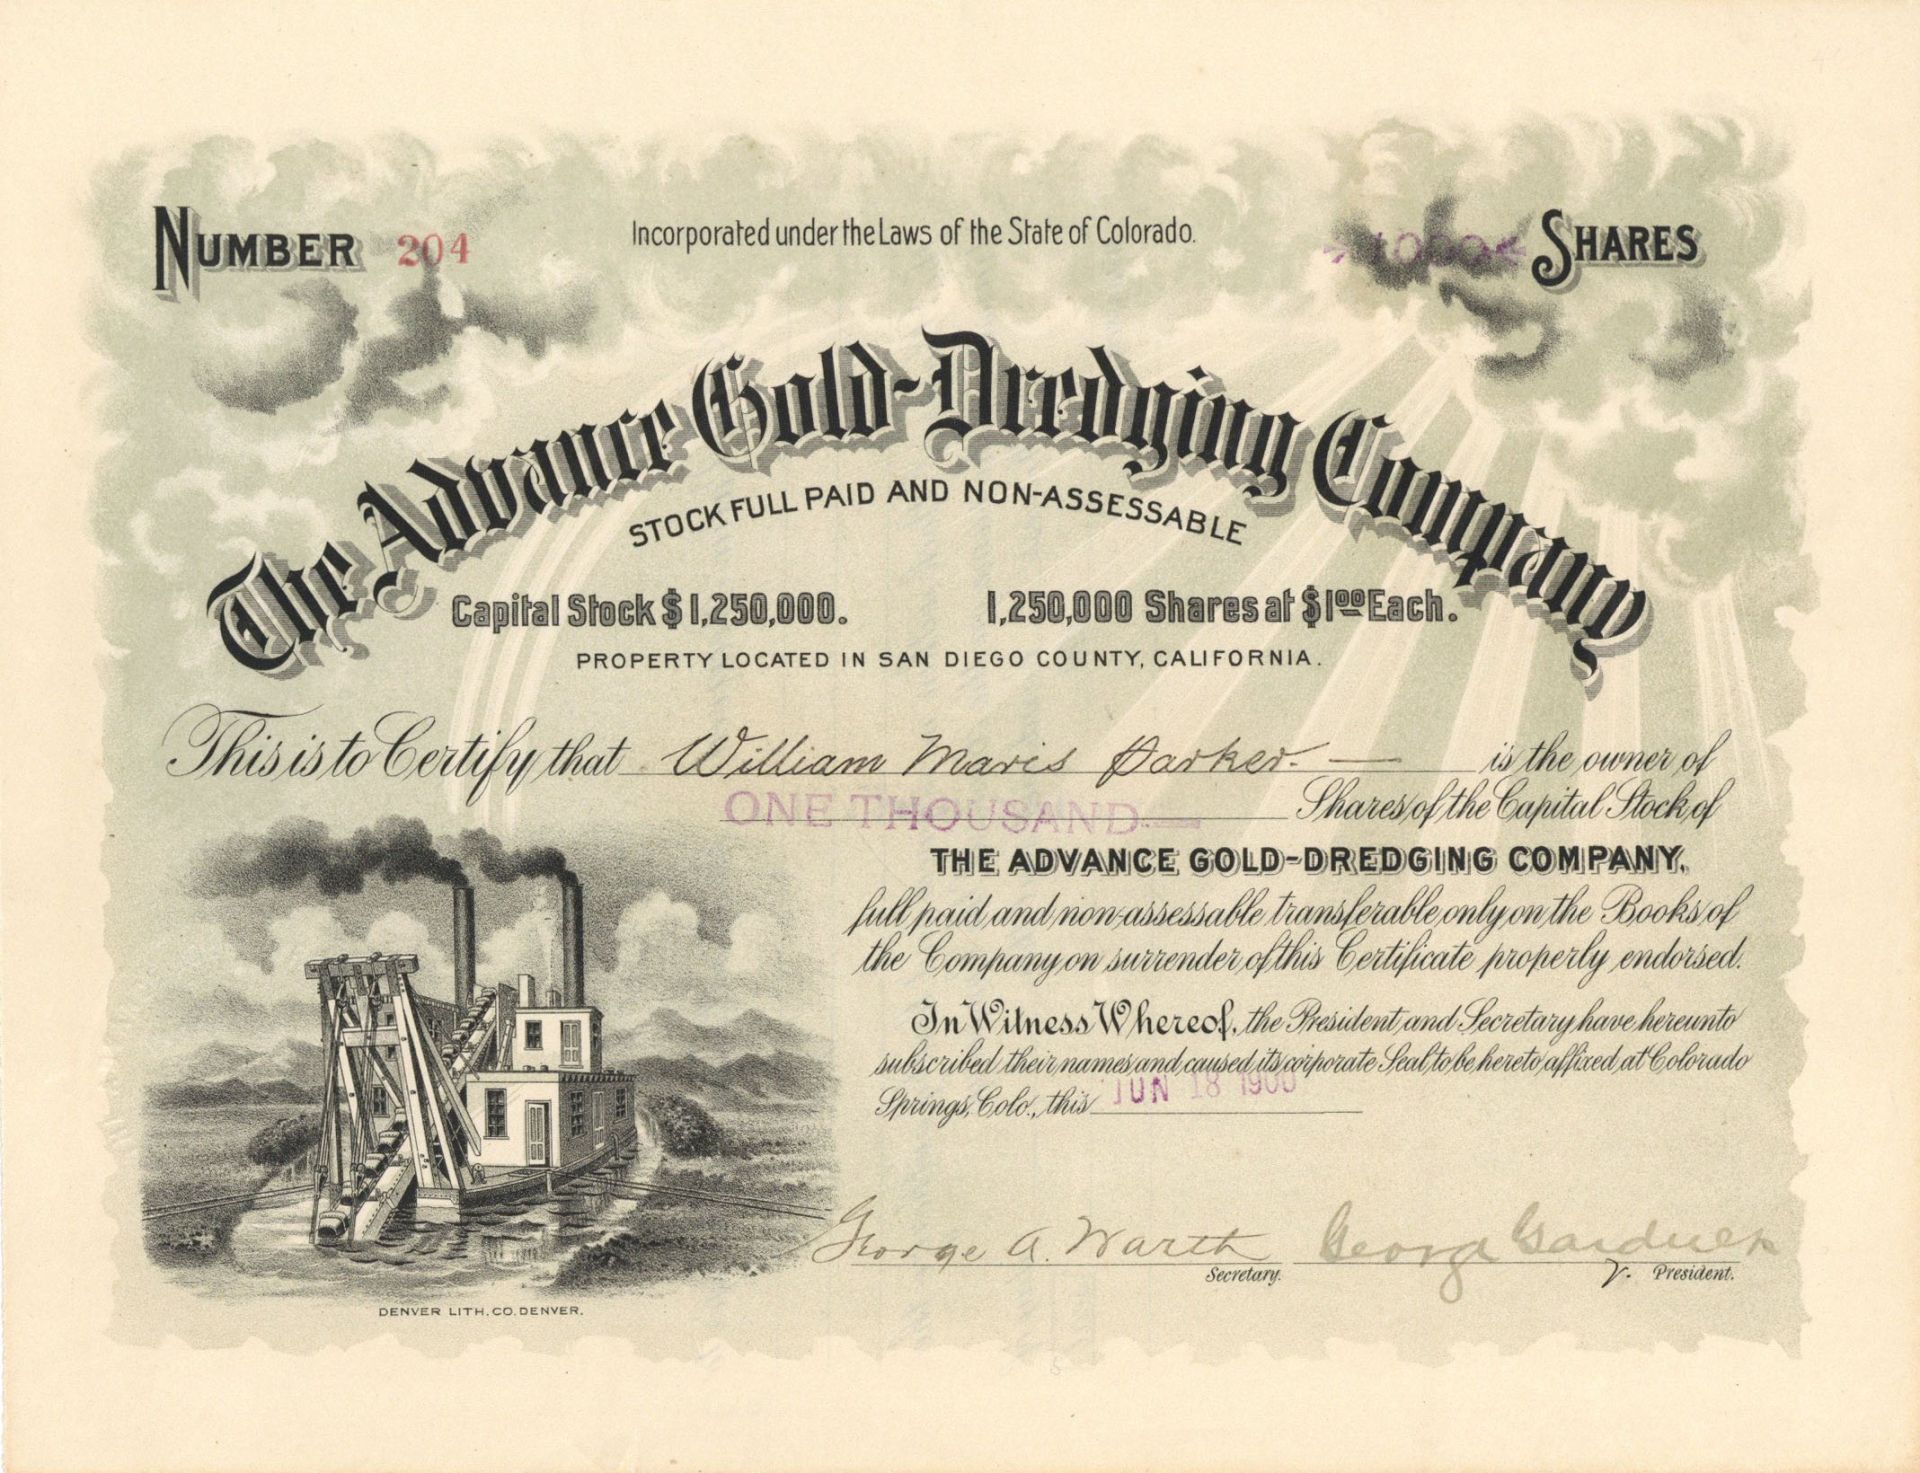 NUMBER 204
Incorporated under the Laws of the State of Colorado.
*1000* SHARES
The Advance Gold-Dredging Company
STOCK FULL PAID AND NON-ASSESSABLE
Capital Stock $1,250,000. 1,250,000 Shares at $1.00 Each.
PROPERTY LOCATED IN SAN DIEGO COUNTY, CALIFORNIA.
This is to Certify that William Maris Parker. — is the owner of
ONE THOUSAND — Shares of the Capital Stock of
THE ADVANCE GOLD-DREDGING COMPANY,
full paid and non-assessable transferable only on the Books of
the Company on surrender of this Certificate properly endorsed.
In Witness Whereof, the President and Secretary have hereunto
subscribed their names and caused its corporate Seal to be hereto affixed at Colorado
Springs, Colo., this JUN 18 1900
George A. Warth George Gardner
Secretary. V. President.
DENVER LITH. CO. DENVER.